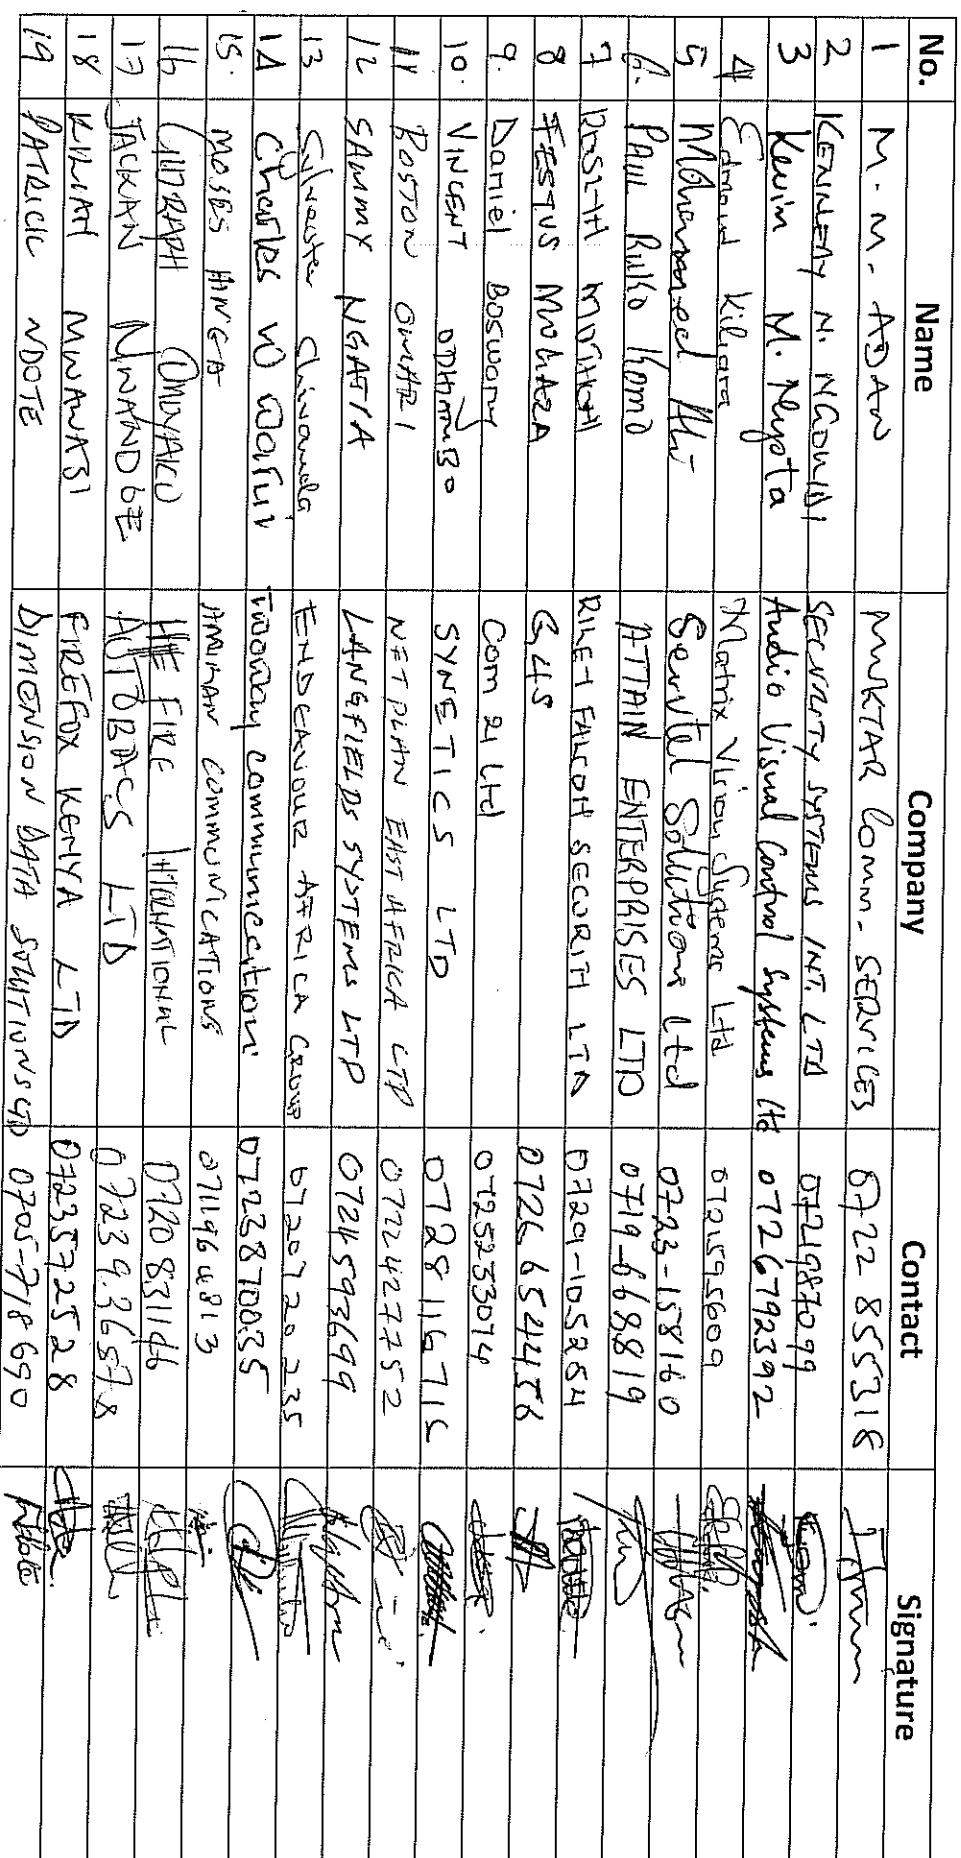 No. Name Company Contact Signature
1 M. M. ADAN MUKTAR COMM. SERVICES 0722 855318
2 KENNEDY N. NGUNDI SECURITY SYSTEMS INT. LTD 0721987099
3 Kevin M. Nyota Audio Visual Control Systems ltd 0726792392
4 Edmond Kibiara Matrix Vision Systems Ltd 0721595609
5 Mohammed Ali Servtel Solutions Ltd 0723-158160
6. PAUL RUKO KOMO ATTAIN ENTERPRISES LTD 0719-668819
7 FALCON SECURITY LTD 0729-105254
8 FESTUS G4S 0726654456
9. Daniel Bosuony Com 21 Ltd 0725233074
10. VINCENT ODHIAMBO SYNETICS LTD 0728116715
11 BOSTON OMARI NETPLAN EAST AFRICA LTD 0722427752
12 SAMMY NGATIA LANGFIELDS SYSTEMS LTD 0724593699
13 Sylvester ENDEAVOUR AFRICA GROUP 0720720235
14 Charles W Warui Twoway communication 0723870035
15. MOSES HINGA COMMUNICATIONS 0711964813
16 GIDRAPH FIRE INTERNATIONAL 0720831146
17 JACKAN AUTOBACS LTD 0723936578
18 KILIAN MWAWASI FIREFOX KENYA LTD 0723572528
19 PATRICK NDOTE DIMENSION DATA SOLUTIONS LTD 0705-718690